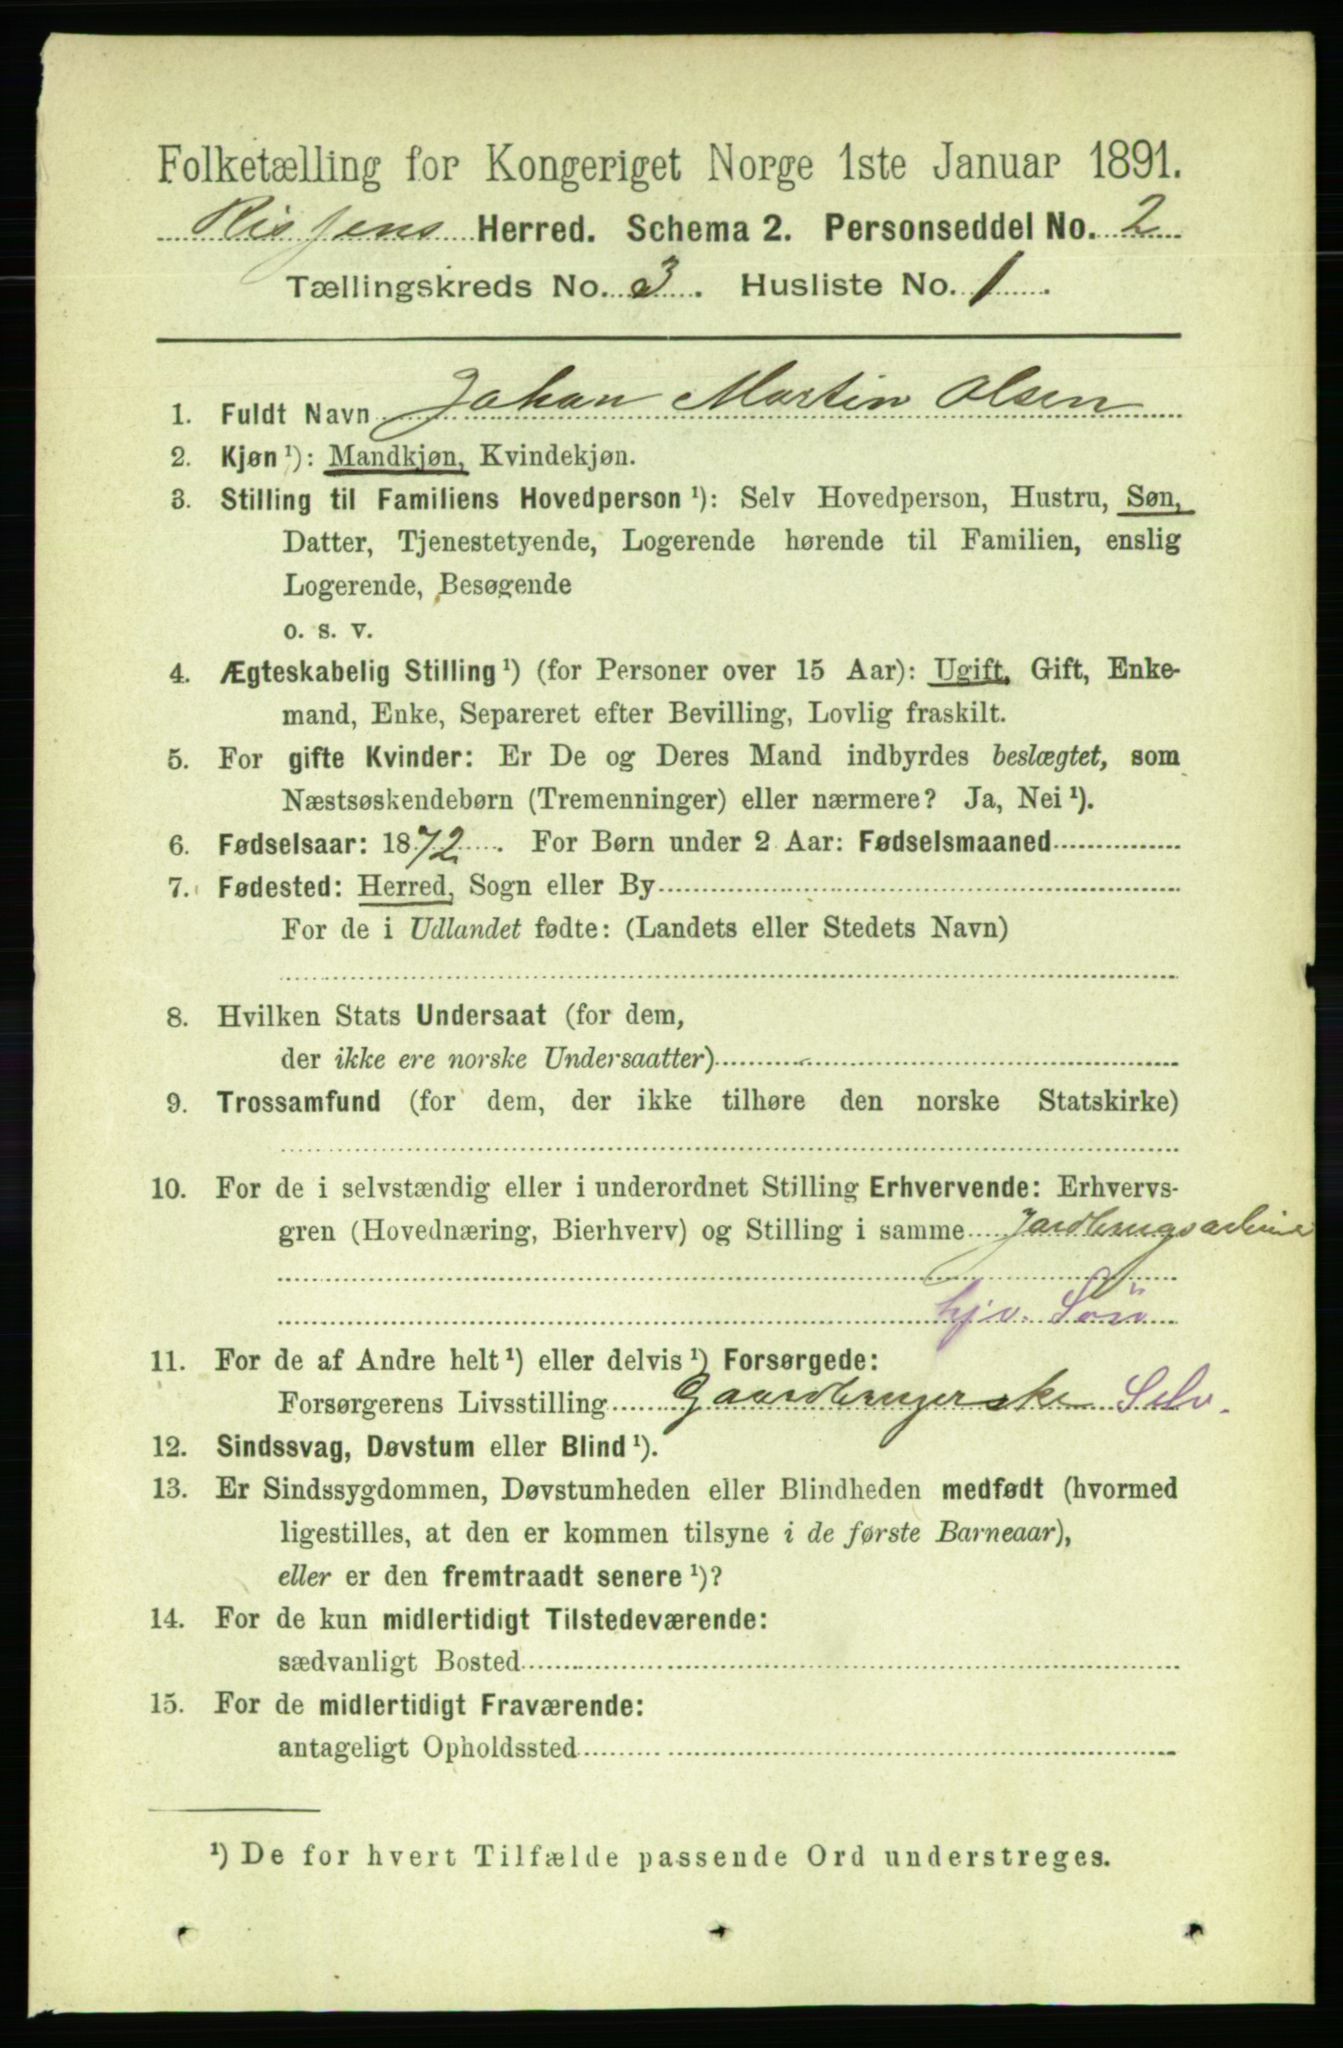 Folketælling for Kongeriget Norge 1ste Januar 1891.
Rissens Herred. Schema 2. Personseddel No. 2
Tællingskreds No. 3. Husliste No. 1.
1. Fuldt Navn Johan Martin Olsen
2. Kjøn¹): Mandkjøn, Kvindekjøn.
3. Stilling til Familiens Hovedperson¹): Selv Hovedperson, Hustru, Søn,
Datter, Tjenestetyende, Logerende hørende til Familien, enslig
Logerende, Besøgende
o. s. v.
4. Ægteskabelig Stilling¹) (for Personer over 15 Aar): Ugift, Gift, Enke-
mand, Enke, Separeret efter Bevilling, Lovlig fraskilt.
5. For gifte Kvinder: Er De og Deres Mand indbyrdes beslægtet, som
Næstsøskendebørn (Tremenninger) eller nærmere? Ja, Nei¹).
6. Fødselsaar: 1872. For Børn under 2 Aar: Fødselsmaaned
7. Fødested: Herred, Sogn eller By
For de i Udlandet fødte: (Landets eller Stedets Navn)
8. Hvilken Stats Undersaat (for dem,
der ikke ere norske Undersaatter)
9. Trossamfund (for dem, der ikke tilhøre den norske Statskirke)
10. For de i selvstændig eller i underordnet Stilling Erhvervende: Erhvervs-
gren (Hovednæring, Bierhverv) og Stilling i samme Jordbrugsarbeide
hjv. Søn
11. For de af Andre helt¹) eller delvis¹) Forsørgede:
Forsørgerens Livsstilling Gaardbrugerske Selv.
12. Sindssvag, Døvstum eller Blind¹).
13. Er Sindssygdommen, Døvstumheden eller Blindheden medfødt (hvormed
ligestilles, at den er kommen tilsyne i de første Barneaar),
eller er den fremtraadt senere¹)?
14. For de kun midlertidigt Tilstedeværende:
sædvanligt Bosted
15. For de midlertidigt Fraværende:
antageligt Opholdssted
¹) De for hvert Tilfælde passende Ord understreges.